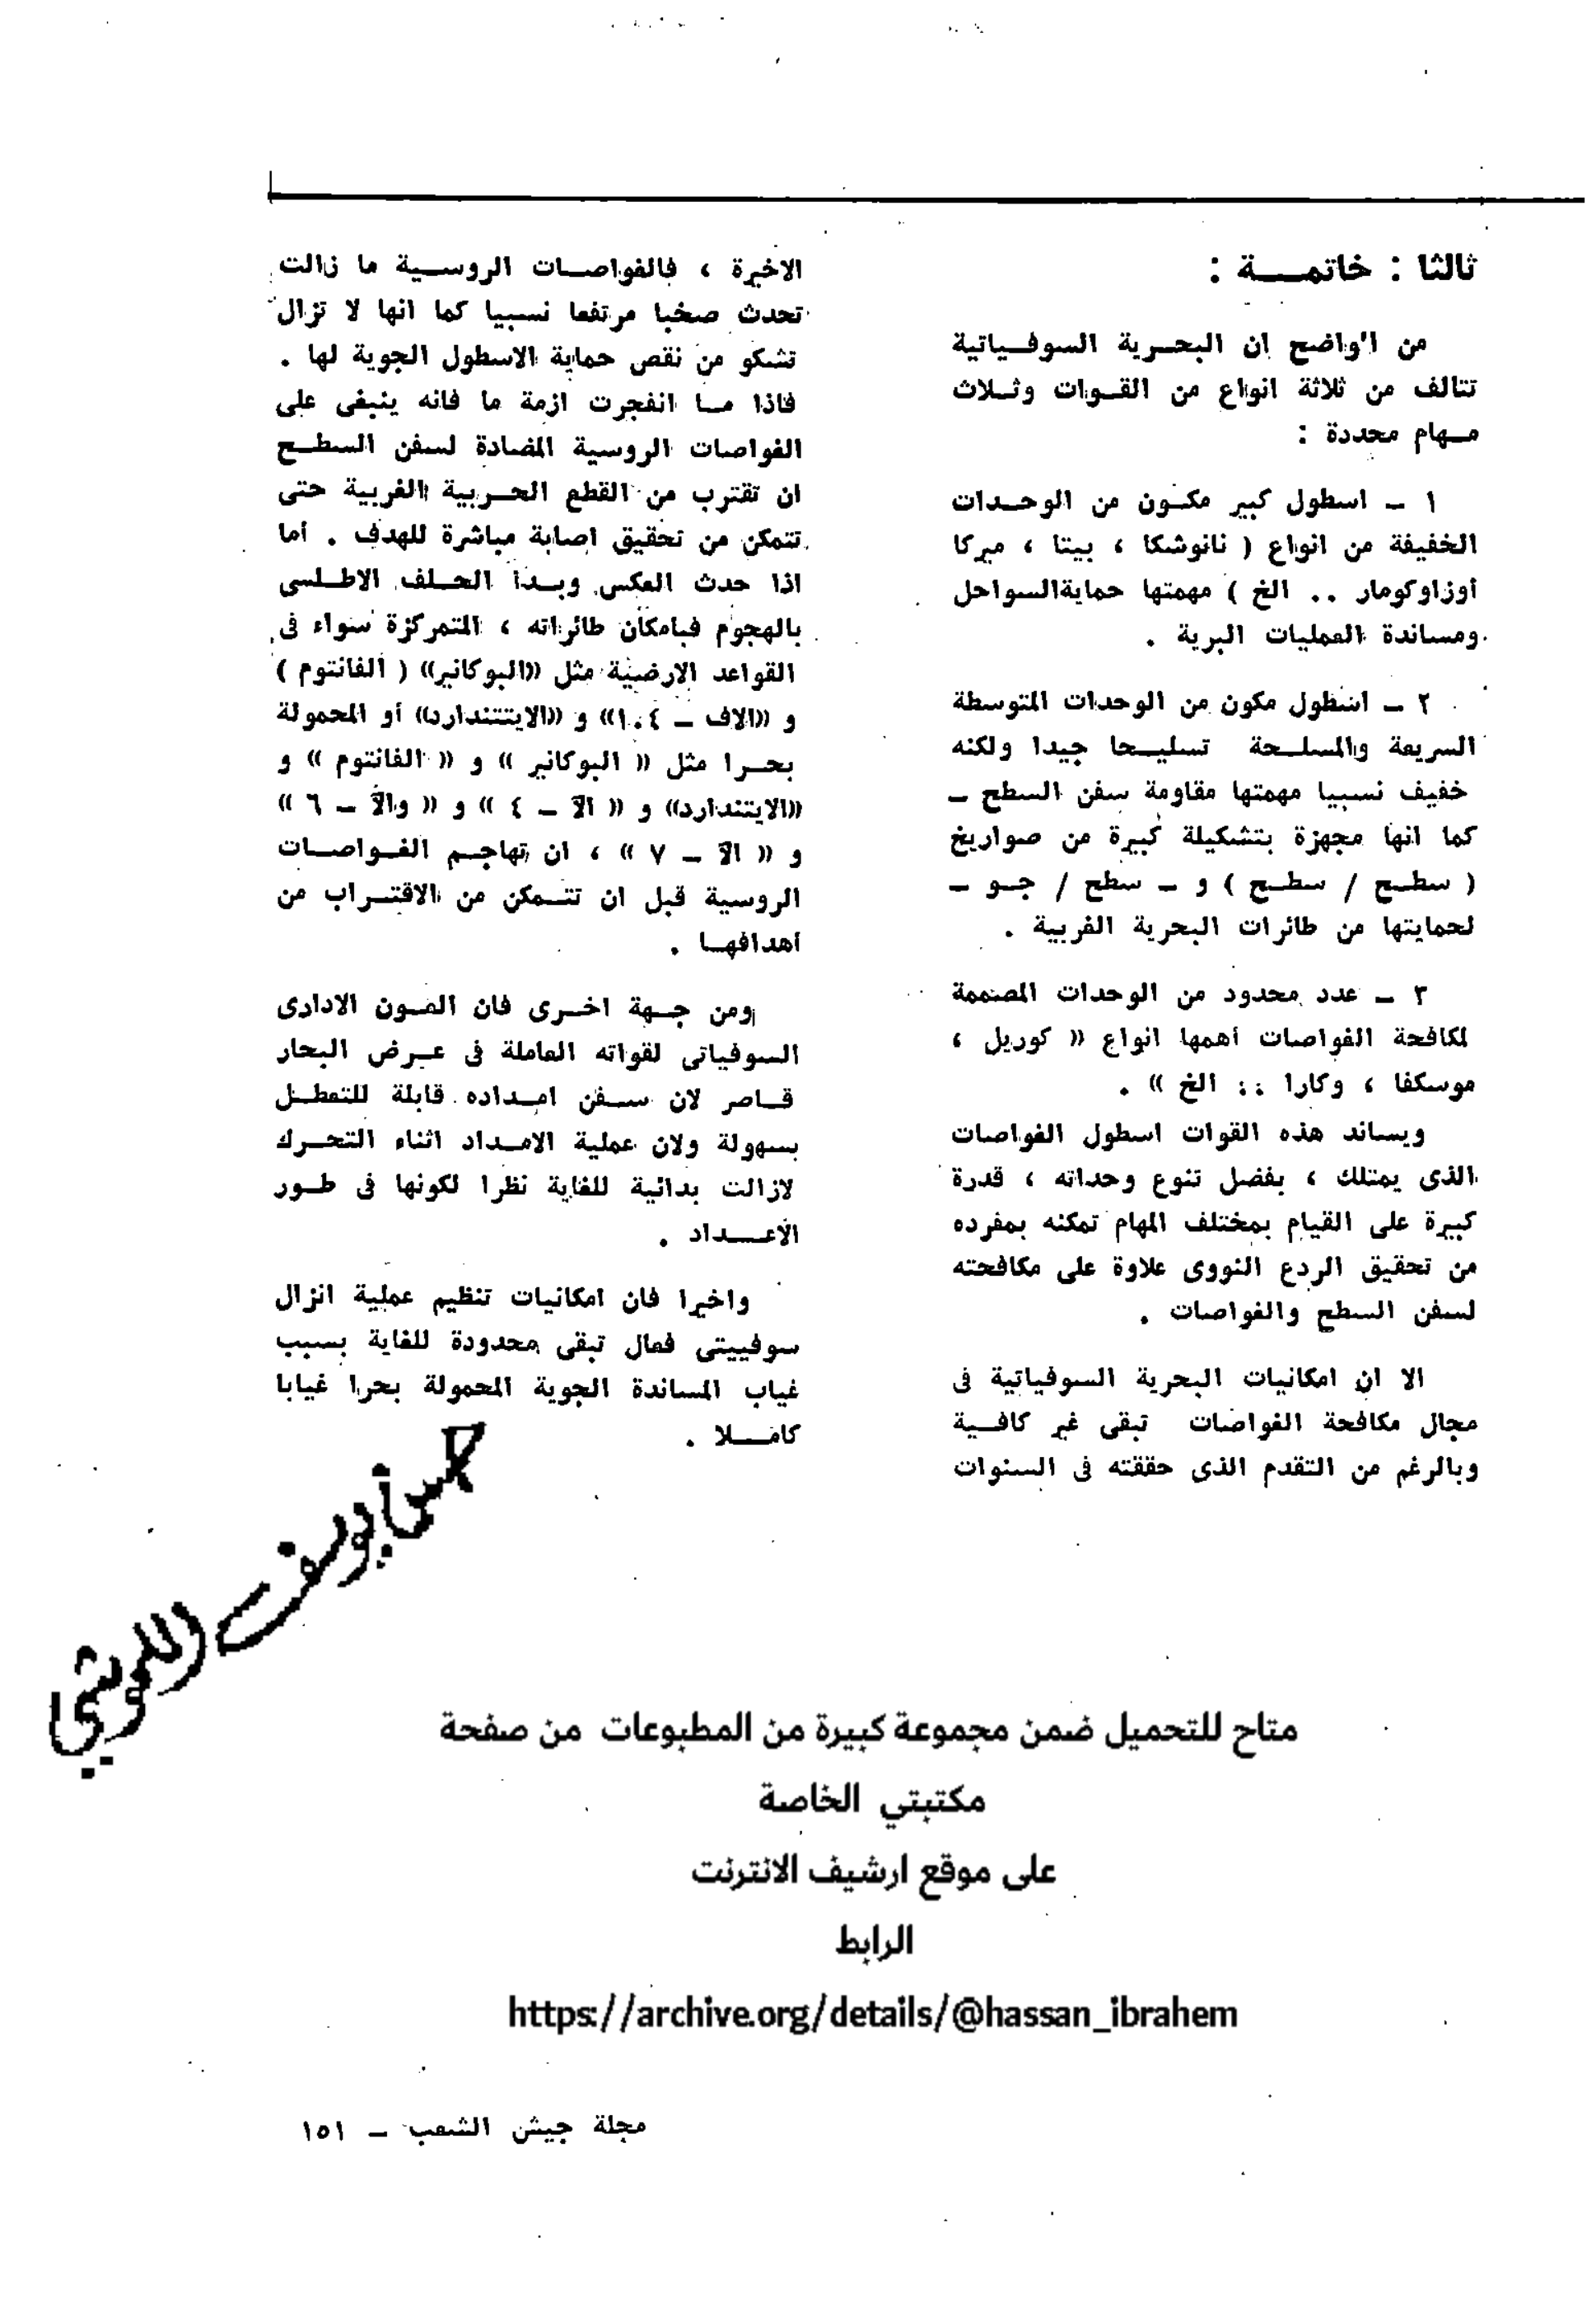 ثالثا : خاتمـــة :
من الواضح ان البحـرية السوفـياتية
تتالف من ثلاثة انواع من القـوات وثـلاث
مـهام محددة :
١ ـ اسطول كبير مكـون من الوحـدات
الخفيفة من انواع ( نانوشكا ، بيتا ، ميركا
أوزاوكومار .. الخ ) مهمتها حمايةالسواحل
ومساندة العمليات البرية .
٢ ـ اسطول مكون من الوحدات المتوسطة
السريعة والمسلـحة تسليـحا جيدا ولكنه
خفيف نسبيا مهمتها مقاومة سفن السطح ـ
كما انها مجهزة بتشكيلة كبيرة من صواريخ
( سطـح / سطـح ) و ـ سطح / جـو ـ
لحمايتها من طائرات البحرية الغربية .
٣ ـ عدد محدود من الوحدات المصممة
لمكافحة الغواصات أهمها انواع « كوريل ،
موسكفا ، وكارا .. الخ » .
ويساند هذه القوات اسطول الغواصات
الذى يمتلك ، بفضل تنوع وحداته ، قدرة
كبيرة على القيام بمختلف المهام تمكنه بمفرده
من تحقيق الردع النووى علاوة على مكافحته
لسفن السطح والغواصات .
الا ان امكانيات البحرية السوفياتية فى
مجال مكافحة الغواصات تبقى غير كافـية
وبالرغم من التقدم الذى حققته فى السنوات
الاخيرة ، فالغواصـات الروسـية ما زالت
تحدث صخبا مرتفعا نسبيا كما انها لا تزال
تشكو من نقص حماية الاسطول الجوية لها .
فاذا مـا انفجرت ازمة ما فانه ينبغى على
الغواصات الروسية المضادة لسفن السطـح
ان تقترب من القطع الحـربية الغربية حتى
تتمكن من تحقيق اصابة مباشرة للهدف . أما
اذا حدث العكس وبـدأ الحـلف الاطـلسى
بالهجوم فبامكان طائراته ، المتمركزة سواء فى
القواعد الارضية مثل «البوكانير» ( الفانتوم )
و «الاف ـ ١٠٤» و «الايتتندارد» أو المحمولة
بحـرا مثل « البوكانير » و « الفانتوم » و
«الايتندارد» و « الآ ـ ٤ » و « والآ ـ ٦ »
و « الآ ـ ٧ » ، ان تهاجـم الغـواصـات
الروسية قبل ان تتـمكن من الاقتـراب من
أهدافهـا .
ومن جـهة اخـرى فان العـون الادارى
السوفياتى لقواته العاملة فى عـرض البحار
قـاصر لان سـفن امـداده قابلة للتعطـل
بسهولة ولان عملية الامـداد اثناء التحـرك
لازالت بدائية للغاية نظرا لكونها فى طـور
الاعـــداد .
واخيرا فان امكانيات تنظيم عملية انزال
سوفييتى فعال تبقى محدودة للغاية بسبب
غياب المساندة الجوية المحمولة بحرا غيابا
كامـــلا .
متاح للتحميل ضمن مجموعة كبيرة من المطبوعات من صفحة
مكتبتي الخاصة
على موقع ارشيف الانترنت
الرابط
https://archive.org/details/@hassan_ibrahem
مجلة جيش الشعب ـ ١٥١